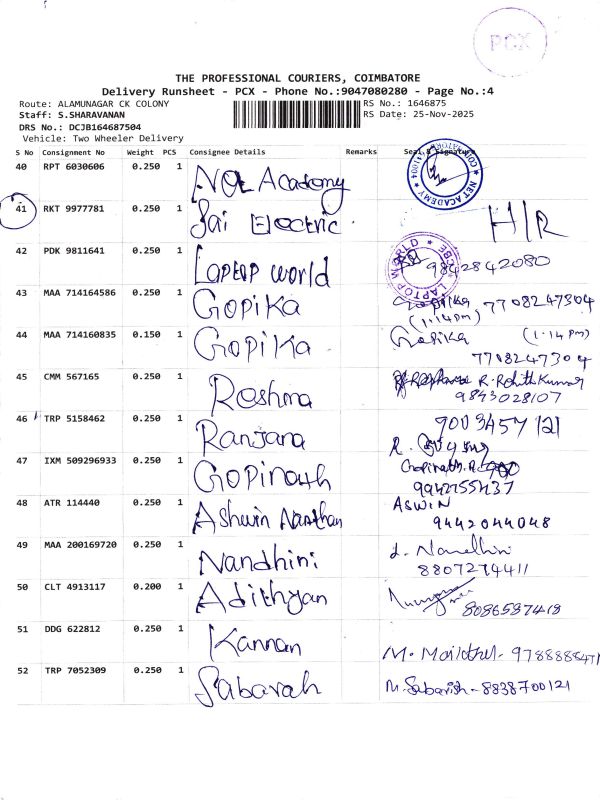 PCX
THE PROFESSIONAL COURIERS, COIMBATORE
Delivery Runsheet - PCX - Phone No.:9047080280 - Page No.:4
Route: ALAMUNAGAR CK COLONY
RS No.: 1646875
Staff: S.SHARAVANAN
RS Date: 25-Nov-2025
DRS No.: DCJB164687504
Vehicle: Two Wheeler Delivery
S No Consignment No Weight PCS Consignee Details Remarks Seal & Signature
40 RPT 6030606 0.250 1 Academy NET ACADEMY
41 RKT 9977781 0.250 1 Sai Electric H/R
42 PDK 9811641 0.250 1 Laptop world LAPTOP WORLD 9842842080
43 MAA 714164586 0.250 1 Gopika Gopika 7708247304
(1.14pm)
44 MAA 714160835 0.150 1 Gopika Gopika (1.14 pm)
7708247304
45 CMM 567165 0.250 1 Reshma R. Rohith Kumar
9843028107
46 TRP 5158462 0.250 1 Ranjana 9003457121
47 IXM 509296933 0.250 1 Gopinath Gopinath.R
9942755437
48 ATR 114440 0.250 1 Ashwin ASWIN
9442044048
49 MAA 200169720 0.250 1 Nandhini Nandhini
8807274411
50 CLT 4913117 0.200 1 Adithyan
51 DDG 622812 0.250 1 Kannan M.
52 TRP 7052309 0.250 1 Sabarah M. Sabarish - 8838700121